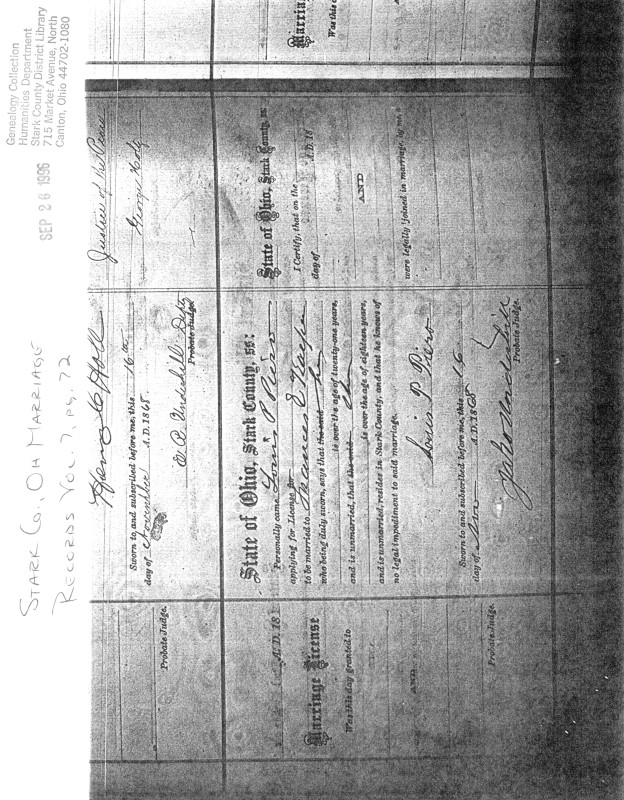 Genealogy Collection
Humanities Department
Stark County District Library
715 Market Avenue, North
Canton, Ohio 44702-1080
SEP 26 1996
STARK CO., OH MARRIAGE
RECORDS VOL. 7, pg. 72
Marriage
Was this
Henry C Hall
Sworn to, and subscribed before me, this 16th
day of November A.D. 1865
Probate Judge.
Justice of the Peace
George Hatz
Probate Judge.
State of Ohio, Stark County, ss:
Personally came Louis P Piero
applying for License for
to be married to Frances E
who being duly sworn, says that the said he
is over the age of twenty-one years,
and is unmarried, that the said she
is over the age of eighteen years,
and is unmarried, resides in Stark County, and that he knows of
no legal impediment to said marriage.
Louis P Piero
Sworn to and subscribed before me, this 16
day of Nov A.D. 1865
Probate Judge.
State of Ohio, Stark County, ss:
I Certify, that on the
day of A.D. 18
AND
were legally joined in marriage, by me, a
A.D. 18
Marriage License
Was this day granted to
AND
Probate Judge.